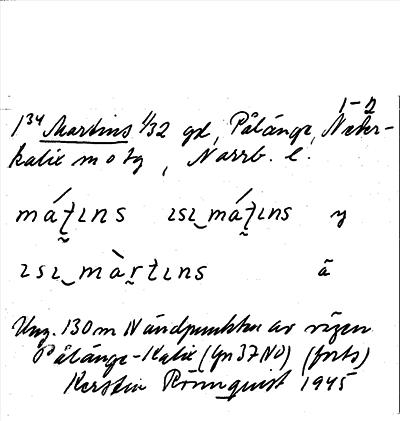 1-2
1³⁴ Martins 1/32 gd, Pålänge, Neder-
kalix m o tg, Norrb. l.
má̰ṯıns ısı‿má̰ṯıns y
ısı‿màr̰tıns ä
Ung. 130 m N ändpunkten av vägen
Pålänge-Kalix (Gn 37 NO) (forts)
Kerstin Rönnquist 1945